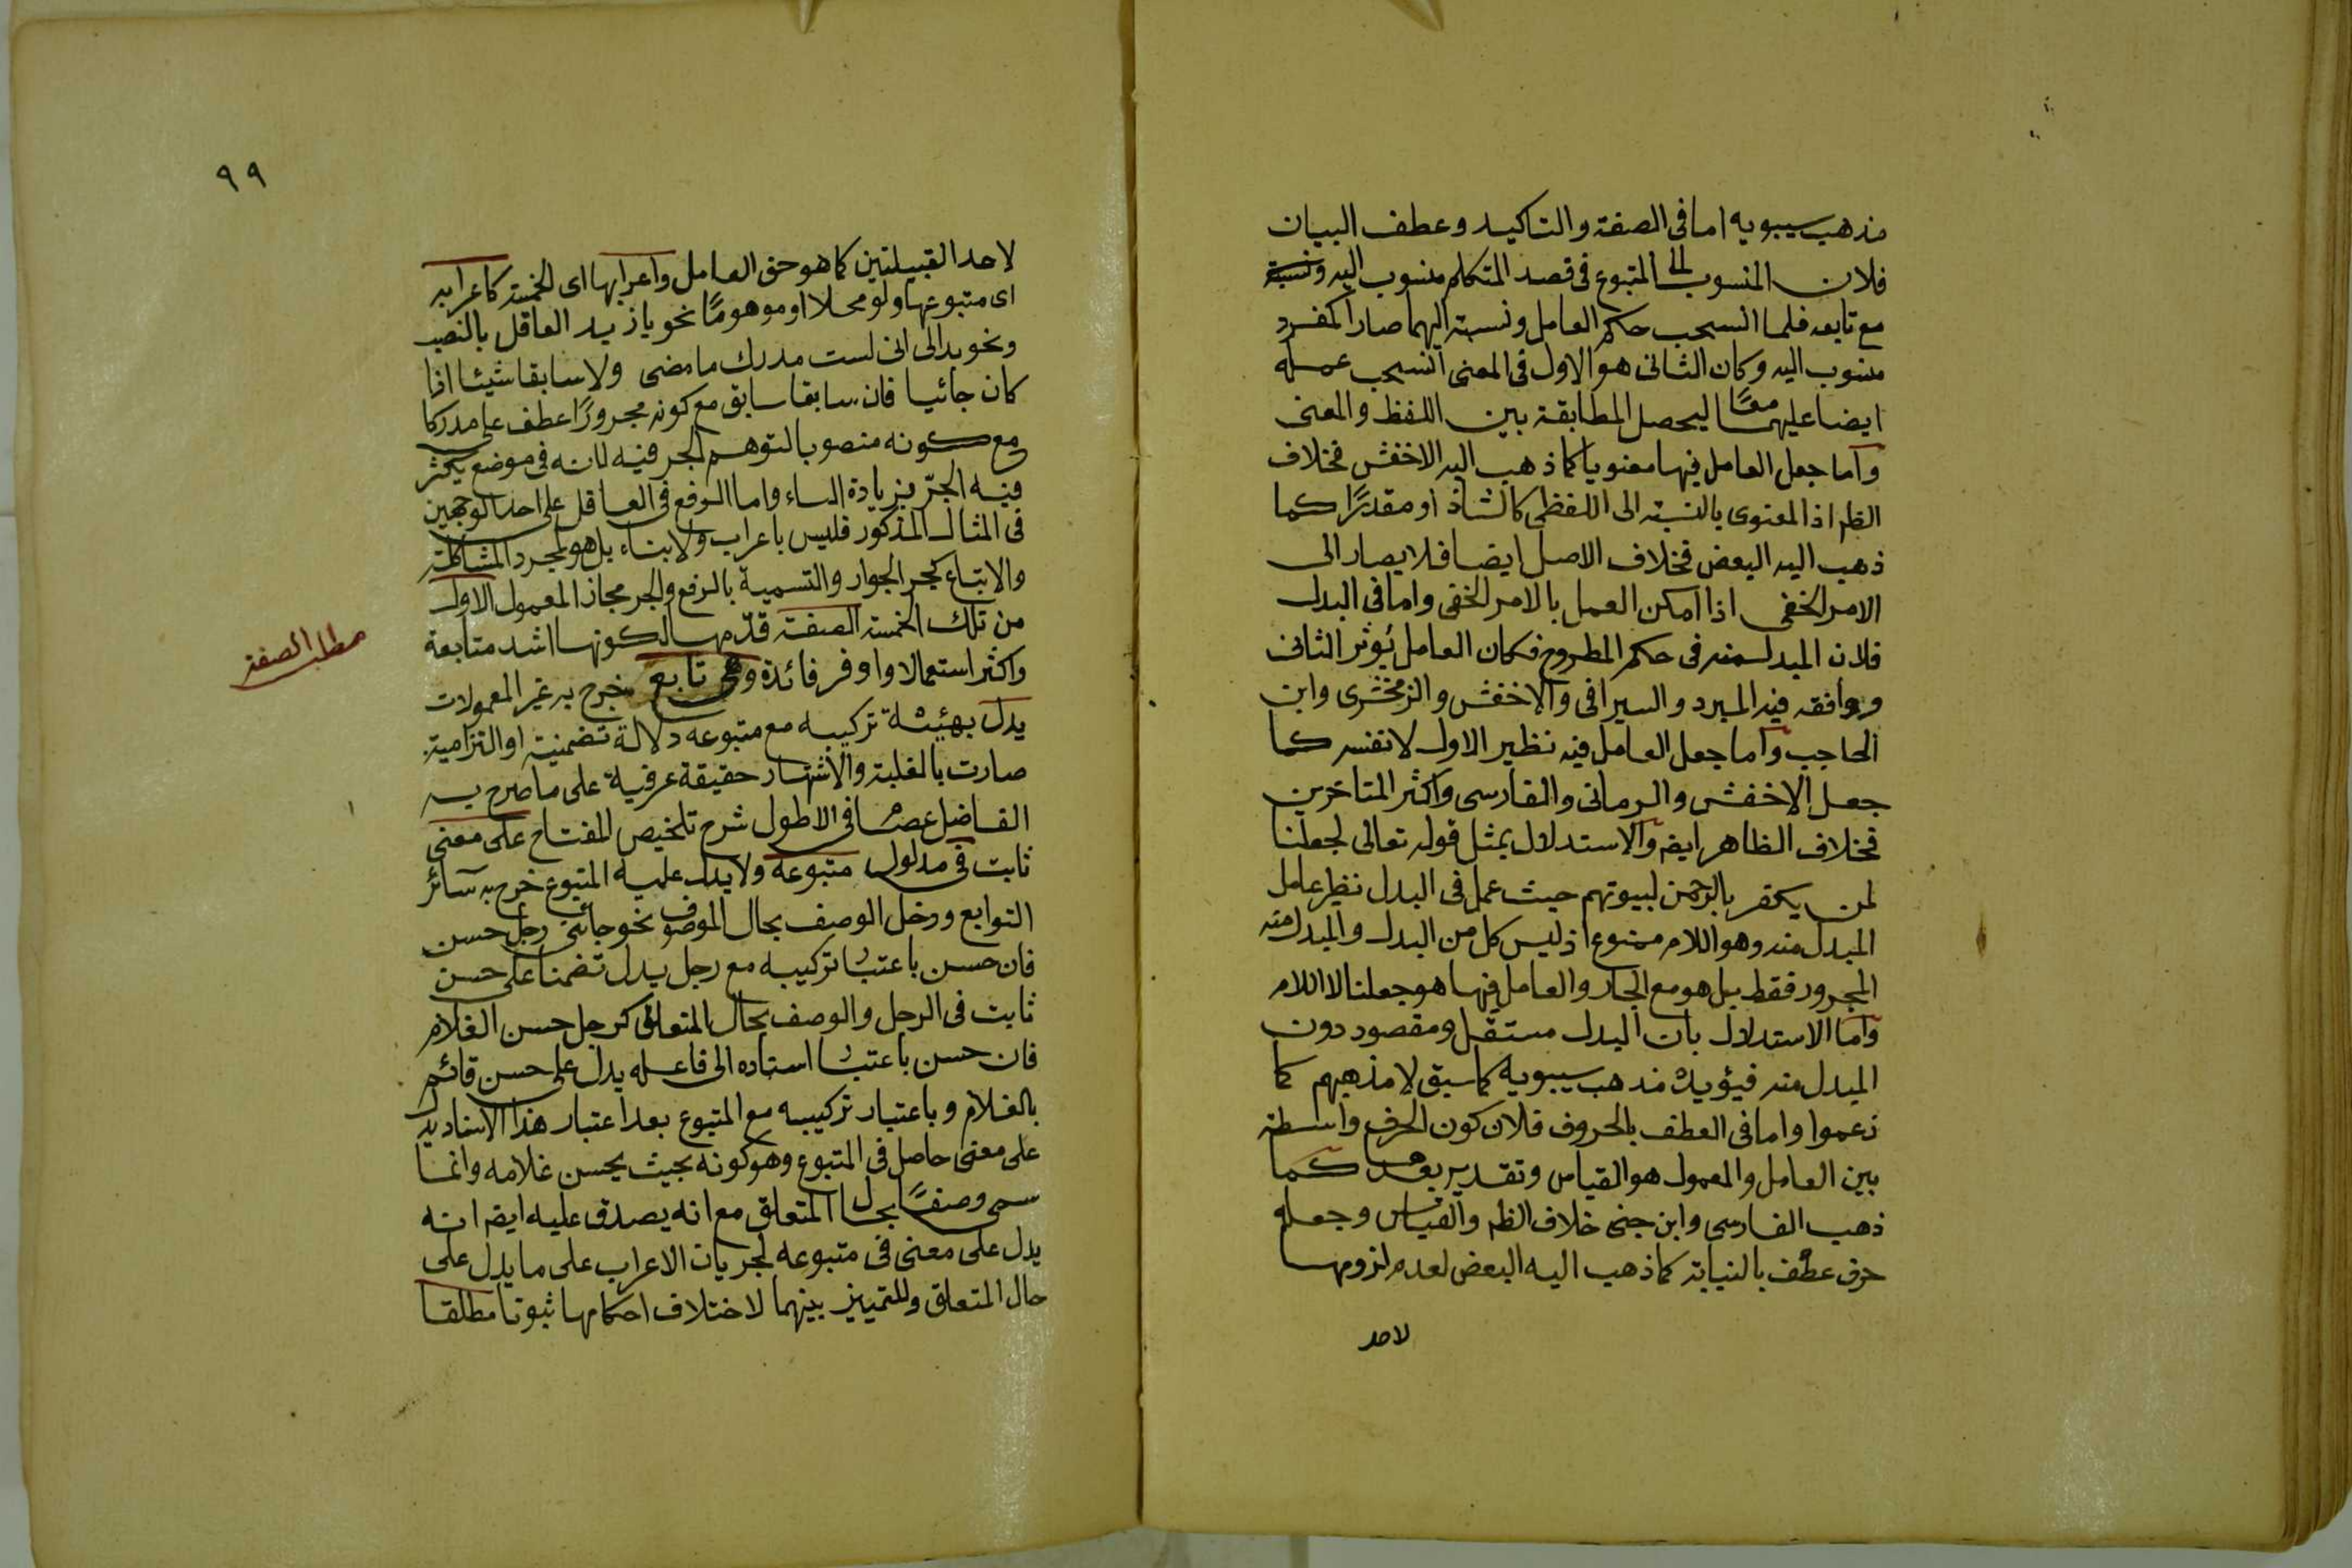 مذهب سيبويه اما فى الصفة والتاكيد وعطف البيان
فلان المنسوب الى المتبوع فى قصد المتكلم منسوب اليه ونسبته
مع تابعه فلما انسحب حكم العامل ونسبته اليهما صارا كمفرد
منسوب اليه وكان الثانى هو الاول فى المعنى انسحب عمله
ايضا عليهما معًا ليحصل المطابقة بين اللفظ والمعنى
واما جعل العامل فيها معنويا كما ذهب اليه الاخفش فخلاف
الظم اذ المعنوى بالنسبة الى اللفظى كالشاذ او مقدرًا كما
ذهب اليه البعض فخلاف الاصل ايضا فلا يصار الى
الامر الخفى اذا امكن العمل بالامر الخفى واما فى البدل
فلان المبدل منه فى حكم المطروح فكان العامل يؤثر الثانى
ووافقه فيه المبرد والسيرافى والاخفش والزمخشرى وابن
الحاجب واما جعل العامل فيه نظير الاول لا نفسه كما
جعل الاخفش والرمانى والفارسى واكثر المتاخرين
فخلاف الظاهر ايضه والاستدلال بمثل قوله تعالى لجعلنا
لمن يكفر بالرحمن لبيوتهم حيث عمل فى البدل نظير عامل
المبدل منه وهو اللام ممنوع اذ ليس كل من البدل والمبدل منه
المجرور فقط بل هو مع الجار والعامل فيها هو جعلنا لا اللام
واما الاستدلال بان البدل مستقل ومقصود دون
المبدل منه فيؤيد مذهب سيبويه كما سبق لا مذهبهم كما
زعموا واما فى العطف بالحروف فلان كون الحرف واسطة
بين العامل والمعمول هو القياس وتقديره بعدها كما
ذهب الفارسى وابن جنى خلاف الظم والقياس وجعله
حرف عطف بالنيابة كما ذهب اليه البعض لعدم لزومها
لاحد
٩٩
لاحد القبيلتين كما هو حق العامل واعرابها اى الخمسة كاعرابه
اى متبوعها ولو محلا او موهومًا نحو يا زيد العاقل بالنصب
ونحو بدالى انى لست مدرك ما مضى ولا سابقا شيئا اذا
كان جائيا فان سابقا سابق مع كونه مجرورًا عطف على مدركا
مع كونه منصوبا لتوهم الجر فيه لانه فى موضع يكثر
فيه الجرّ بزيادة الباء واما الرفع فى العاقل على احد الوجهين
فى المثال المذكور فليس باعراب ولا بناء بل هو لمجرد المشاكلة
والاتباع كجر الجوار والتسمية بالرفع والجر مجاز المعمول الاول
من تلك الخمسة الصفة قدّمها لكونها اشد متابعة
مطلب الصفة
واكثر استعمالا واوفر فائدة وهى تابع خرج به غير المعمولات
يدل بهيئة تركيبه مع متبوعه دلالة تضمنية او التزامية
صارت بالغلبة والاشتهار حقيقة عرفية على ما صرح به
الفاضل عصا فى الاطول شرح تلخيص المفتاح على معنى
ثابت فى مدلول متبوعه ولا يدل عليه المتبوع خرج به سائر
التوابع ودخل الوصف بحال الموصوف نحو جائنى رجل حسن
فان حسن باعتبا تركيبه مع رجل يدل تضمنا على حسن
ثابت فى الرجل والوصف بحال المتعلق كرجل حسن الغلام
فان حسن باعتبا اسناده الى فاعله يدل على حسن قائم
بالغلام وباعتبار تركيبه مع المتبوع بعد اعتبار هذا الاسناد يدل
على معنى حاصل فى المتبوع وهو كونه بحيث يحسن غلامه وانما
سمى وصفًا بحال المتعلق مع انه يصدق عليه ايضه انه
يدل على معنى فى متبوعه لجريان الاعراب على ما يدل على
حال المتعلق وللتمييز بينهما لاختلاف احكامها ثبوتا مطلقا